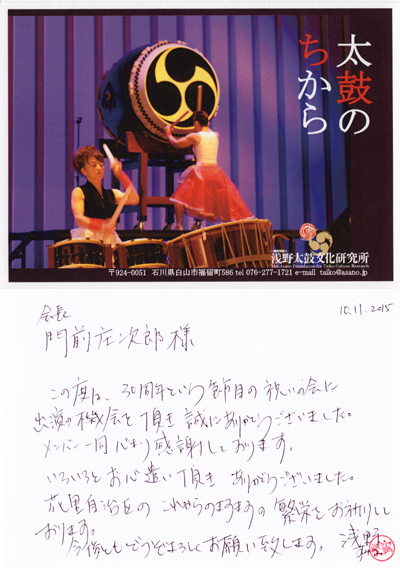 太鼓の
ちから
浅野太鼓文化研究所
The Asano Foundation for Taiko Culture Research
〒924-0051 石川県白山市福留町586 tel 076-277-1721 e-mail taiko@asano.jp
会長
10.11.2015
門前庄次郎様
この度は、30周年という節目の祝いの会に
出演の機会を頂き誠にありがとうございました。
メンバー一同心より感謝しております。
いろいろとお心遣い頂き ありがとうございました。
花里自治区の これからのますますの繁栄をお祈りして
おります。
今後ともどうぞよろしくお願い致します。
浅野